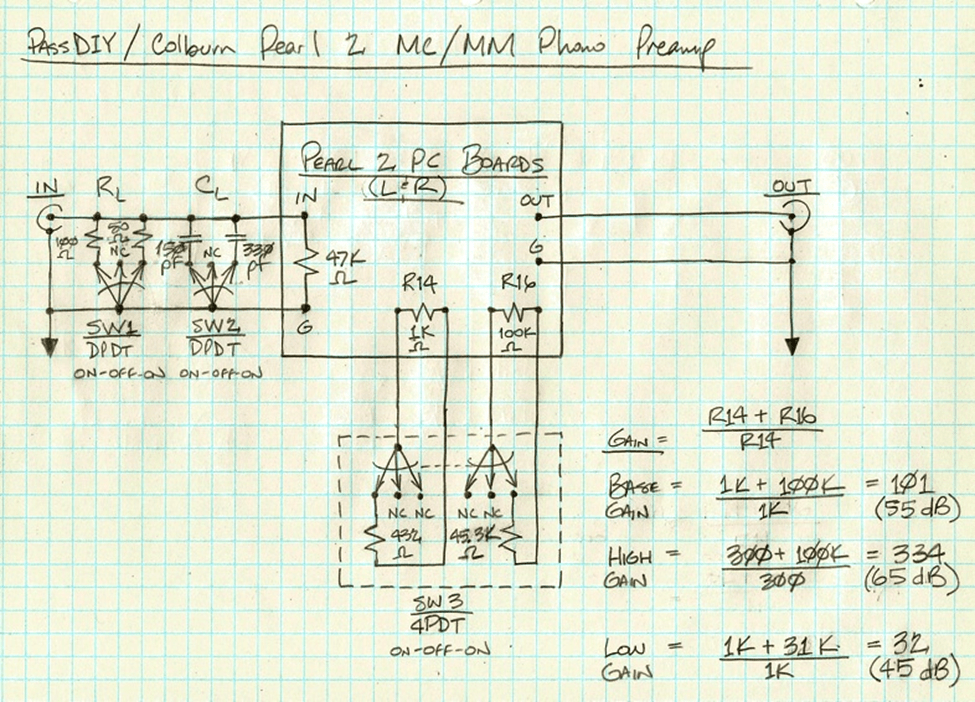 PASSDIY/Colburn Pearl 2 MC/MM Phono Preamp
PEARL 2 PC BOARDS
(L & R)
IN
R_L
C_L
IN
OUT
OUT
100
Ω
50
Ω
NC
150
pF
NC
330
pF
47K
Ω
G
G
R14
1K
Ω
R16
100K
Ω
SW1
DPDT
ON-OFF-ON
SW2
DPDT
ON-OFF-ON
NC NC
NC NC
432
Ω
45.3K
Ω
SW3
4PDT
ON-OFF-ON
GAIN = R14 + R16
R14
BASE GAIN = 1K + 100K = 101
1K (55 dB)
HIGH GAIN = 300 + 100K = 334
300 (65 dB)
LOW GAIN = 1K + 31K = 32
1K (45 dB)